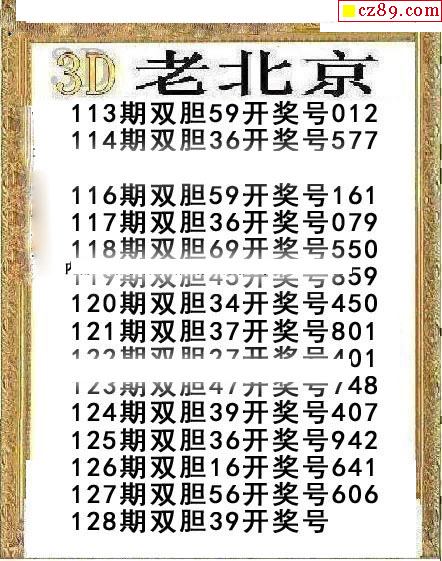 cz89.com
3D 老北京
113期双胆59开奖号012
114期双胆36开奖号577
116期双胆59开奖号161
117期双胆36开奖号079
118期双胆69开奖号550
119期双胆45开奖号859
120期双胆34开奖号450
121期双胆37开奖号801
122期双胆27开奖号401
123期双胆47开奖号748
124期双胆39开奖号407
125期双胆36开奖号942
126期双胆16开奖号641
127期双胆56开奖号606
128期双胆39开奖号